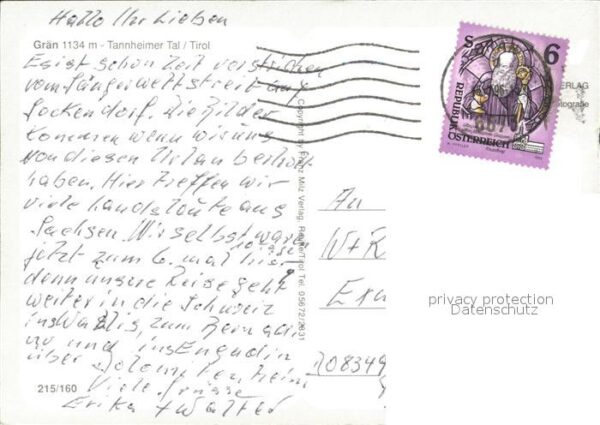 Hallo Ihr Lieben
Grän 1134 m - Tannheimer Tal / Tirol
Es ist schon Zeit verstrichen
vom Sängerwettstreit auf
Die Bilder
kommen wenn wir uns
von diesen Urlaub
haben. Hier treffen wir
viele Landsleute aus
Sachsen. Wir selbst waren
jetzt zum 6. mal hier
denn unsere Reise geht
weiter in die Schweiz
ins Wallis, zum
und ins Engadin
über Dolomiten heim
Viele Grüsse
Erika + Walter
215/160
Copyright by Franz Milz Verlag, Reutte/Tirol Tel. 05672/2631
6
REPUBLIK
ÖSTERREICH
An
W + K
08349
privacy protection
Datenschutz